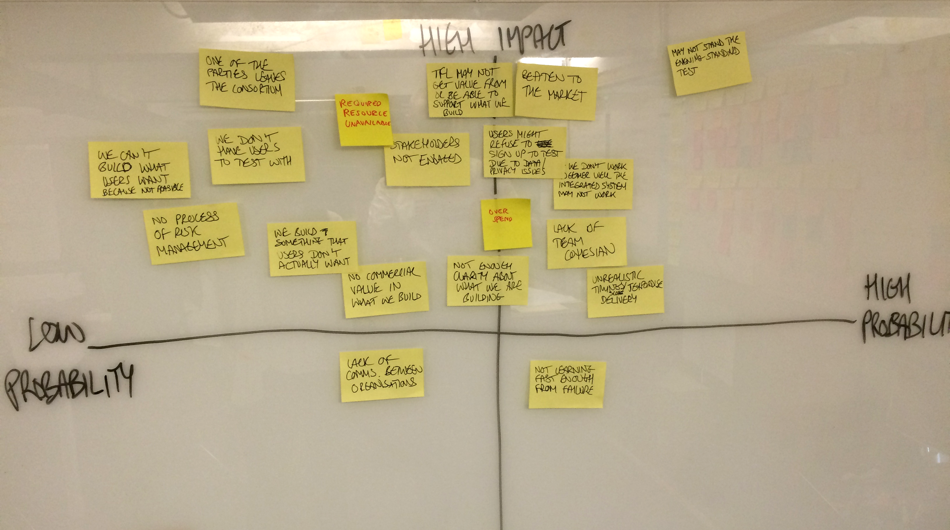 HIGH IMPACT
ONE OF THE
PARTIES LEAVES
THE CONSORTIUM
REQUIRED
RESOURCE
UNAVAILABLE
TFL MAY NOT
GET VALUE FROM
OR BE ABLE TO
SUPPORT WHAT WE
BUILD
BEATEN TO
THE MARKET
MAY NOT STAND THE
EVENING STANDARD
TEST
WE CAN'T
BUILD WHAT
USERS WANT
BECAUSE NOT
WE DON'T
HAVE USERS
TO TEST WITH
STAKEHOLDERS
NOT ENGAGED
USERS MIGHT
REFUSE TO
SIGN UP TO TEST
DUE TO DATA/
PRIVACY ISSUES
WE DON'T WORK
TOGETHER WELL THE
INTEGRATED SYSTEM
MAY NOT WORK
NO PROCESS
OF RISK
MANAGEMENT
WE BUILD
SOMETHING THAT
USERS DON'T
ACTUALLY WANT
OVER
SPEND
LACK OF
TEAM
COHESIAN
NO COMMERCIAL
VALUE IN
WHAT WE BUILD
NOT ENOUGH
CLARITY ABOUT
WHAT WE ARE
BUILDING
UNREALISTIC
DELIVERY
LOW
PROBABILITY
HIGH
PROBABILIT
LACK OF
COMMS. BETWEEN
ORGANISATIONS
NOT LEARNING
FAST ENOUGH
FROM FAILURE